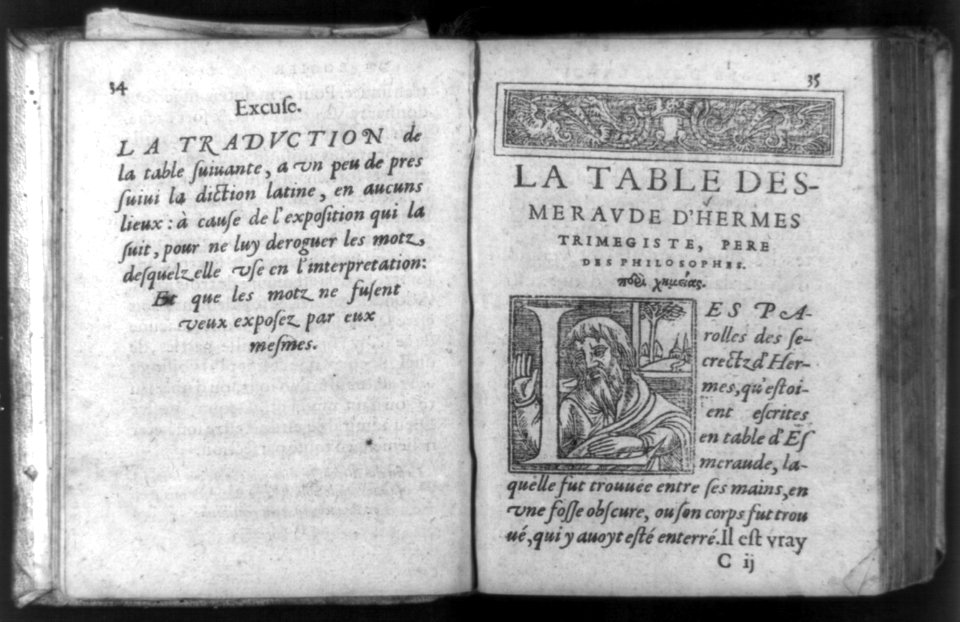 34
Excuse.
LA TRADVCTION de
la table ſuiuante, a vn peu de pres
ſuiui la diction latine, en aucuns
lieux: à cauſe de l'expoſition qui la
ſuit, pour ne luy deroguer les motz,
deſquelz elle vſe en l'interpretation:
Et que les motz ne fuſent
veux expoſez par eux
meſmes.
35
LA TABLE DES-
MERAVDE D'HERMES
TRIMEGISTE, PERE
DES PHILOSOPHES.
χημείας.
LES PA-
rolles des ſe-
crectz d'Her-
mes, qu'eſtoi-
ent eſcrites
en table d'Eſ
meraude, la-
quelle fut trouuée entre ſes mains, en
vne foſſe obſcure, ou ſon corps fut trou
ué, qui y auoyt eſté enterré. Il eſt vray
C ij